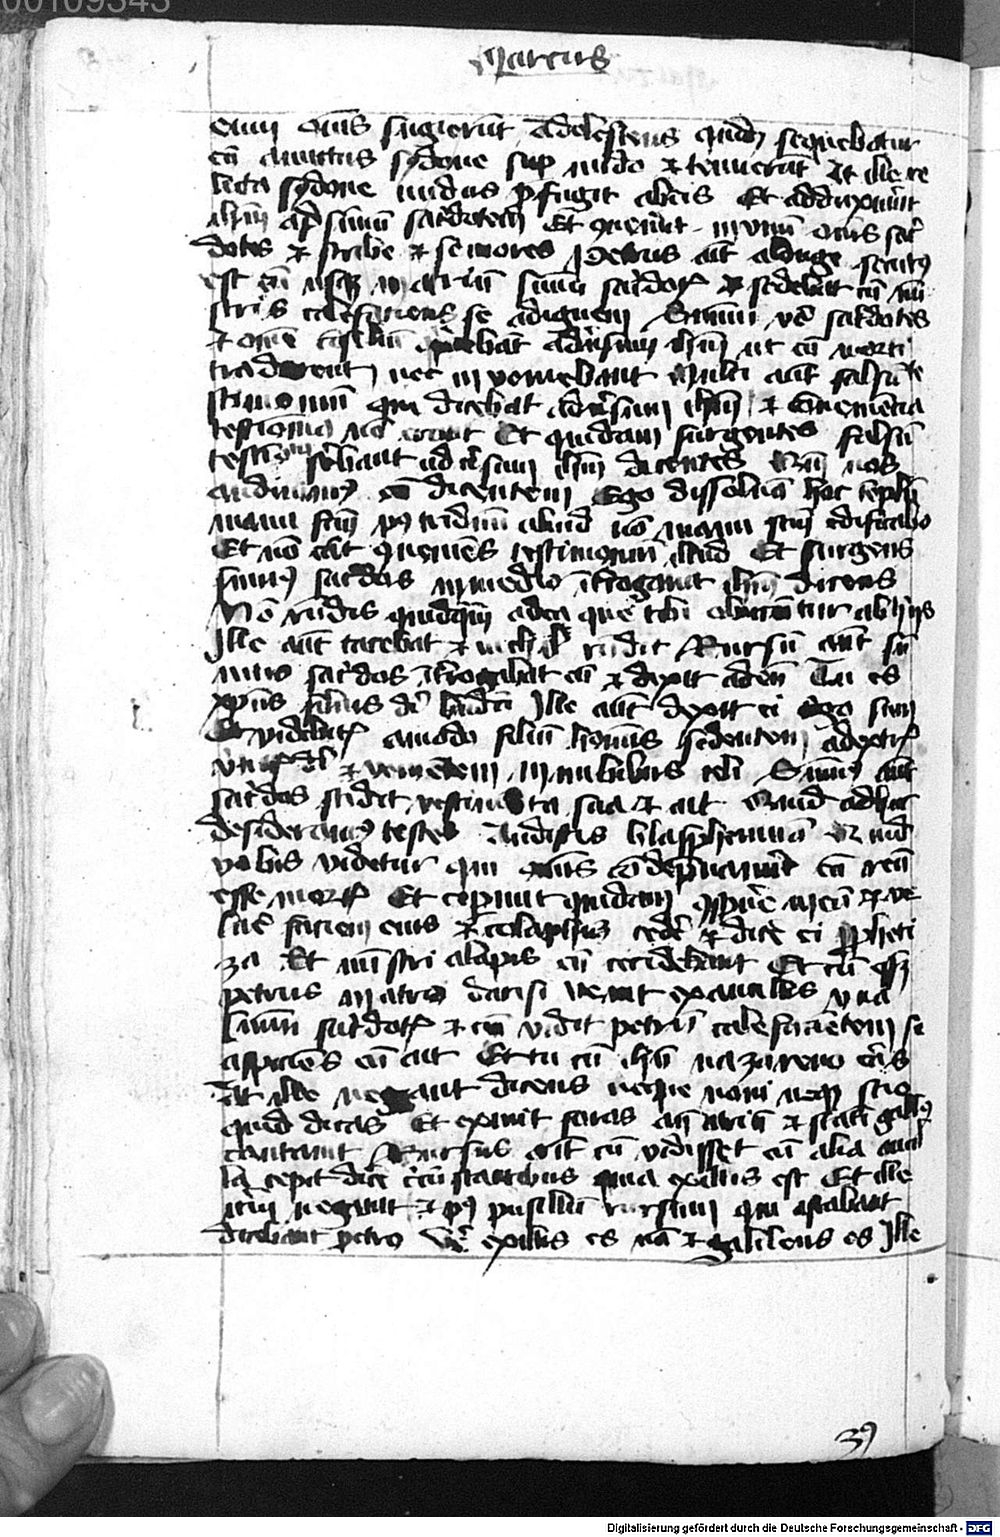 00109343
Marcus
eum omnes fugierunt Adolescens quidam sequebatur
eum amictus sydone sup nudo et tenuerunt At ille re
licta sydone nudus profugit ab eis Et adduxerunt
ihm apud summum sacerdotem Et convenerunt in unum omnes sacer
dotes et scribe et seniores Petrus aut a longe secutus
est eum usque in atrium summi sacerdotis et sedebat cum mi
stris calefaciens se ad ignem Summi vero sacerdotes
et omne consilium querebant adversum ihm ut eum morti
traderent nec inveniebant Multi aut falsum te
stimonium dicebat adversum ihm et convenientia
testimonia non erant Et quidam surgentes falsum
testimonium ferebant adversum ihm dicentes Qm nos
audivimus eum dicentem Ego dissolvam hoc templum
manu factum post triduum aliud non manu factum edificabo
Et non erat conveniens testimonium illud Et surgens
summus sacerdos in medio interrogavit ihm dicens
Non respondis quidquam ad ea que tibi obiciuntur ab hiis
Ille aut tacebat et nichil respondit Rursum aut su
mus sacerdos interrogabat eum et dixit ad eum Tu es
xpus filius dei benedicti Ille aut dixit ei Ego sum
Et videbitis amodo filium hominis sedentem a dextris
virtutis dei et venientem in nubibus celi Summus aut
sacerdos scidit vestimenta sua et ait Quid adhuc
desideramus testes Audistis blasphemiam Quid
vobis videtur qui omnes condempnaverunt eum reum
esse mortis Et ceperunt quidam conspuere in eum et ve
lare faciem eius et colaphis cedere et dicere ei propheti
za Et ministri alapis eum cecidebant Et cum esset
petrus in atrio deorsum venit ex ancillis una
summi sacerdotis et cum vidit petrum calefacientem se
aspiciens eum ait Et tu cum ihu nazareno eras
At ille negavit dicens neque novi neque scio
quid dicas Et exiit foras ante atrium et statim gallus
cantavit Rursus aut cum vidisset eum alia ancil
la cepit dicere circumstantibus quia ex illis est Et ille
iterum negavit et post pusillum rursum qui astabant
dicebant petro Vere ex illis es nam et galileus es Ille
39
Digitalisierung gefördert durch die Deutsche Forschungsgemeinschaft - DFG